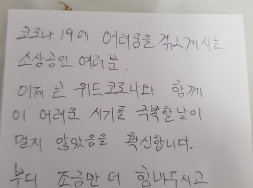 코로나 19에 어려움을 겪으계시는
소상공인 여러분.
이제는 위드코로나와 함께
이 어려운 시기를 극복할날이
멀지 않았음을 확신합니다.
부디 조금만 더 힘내주시고